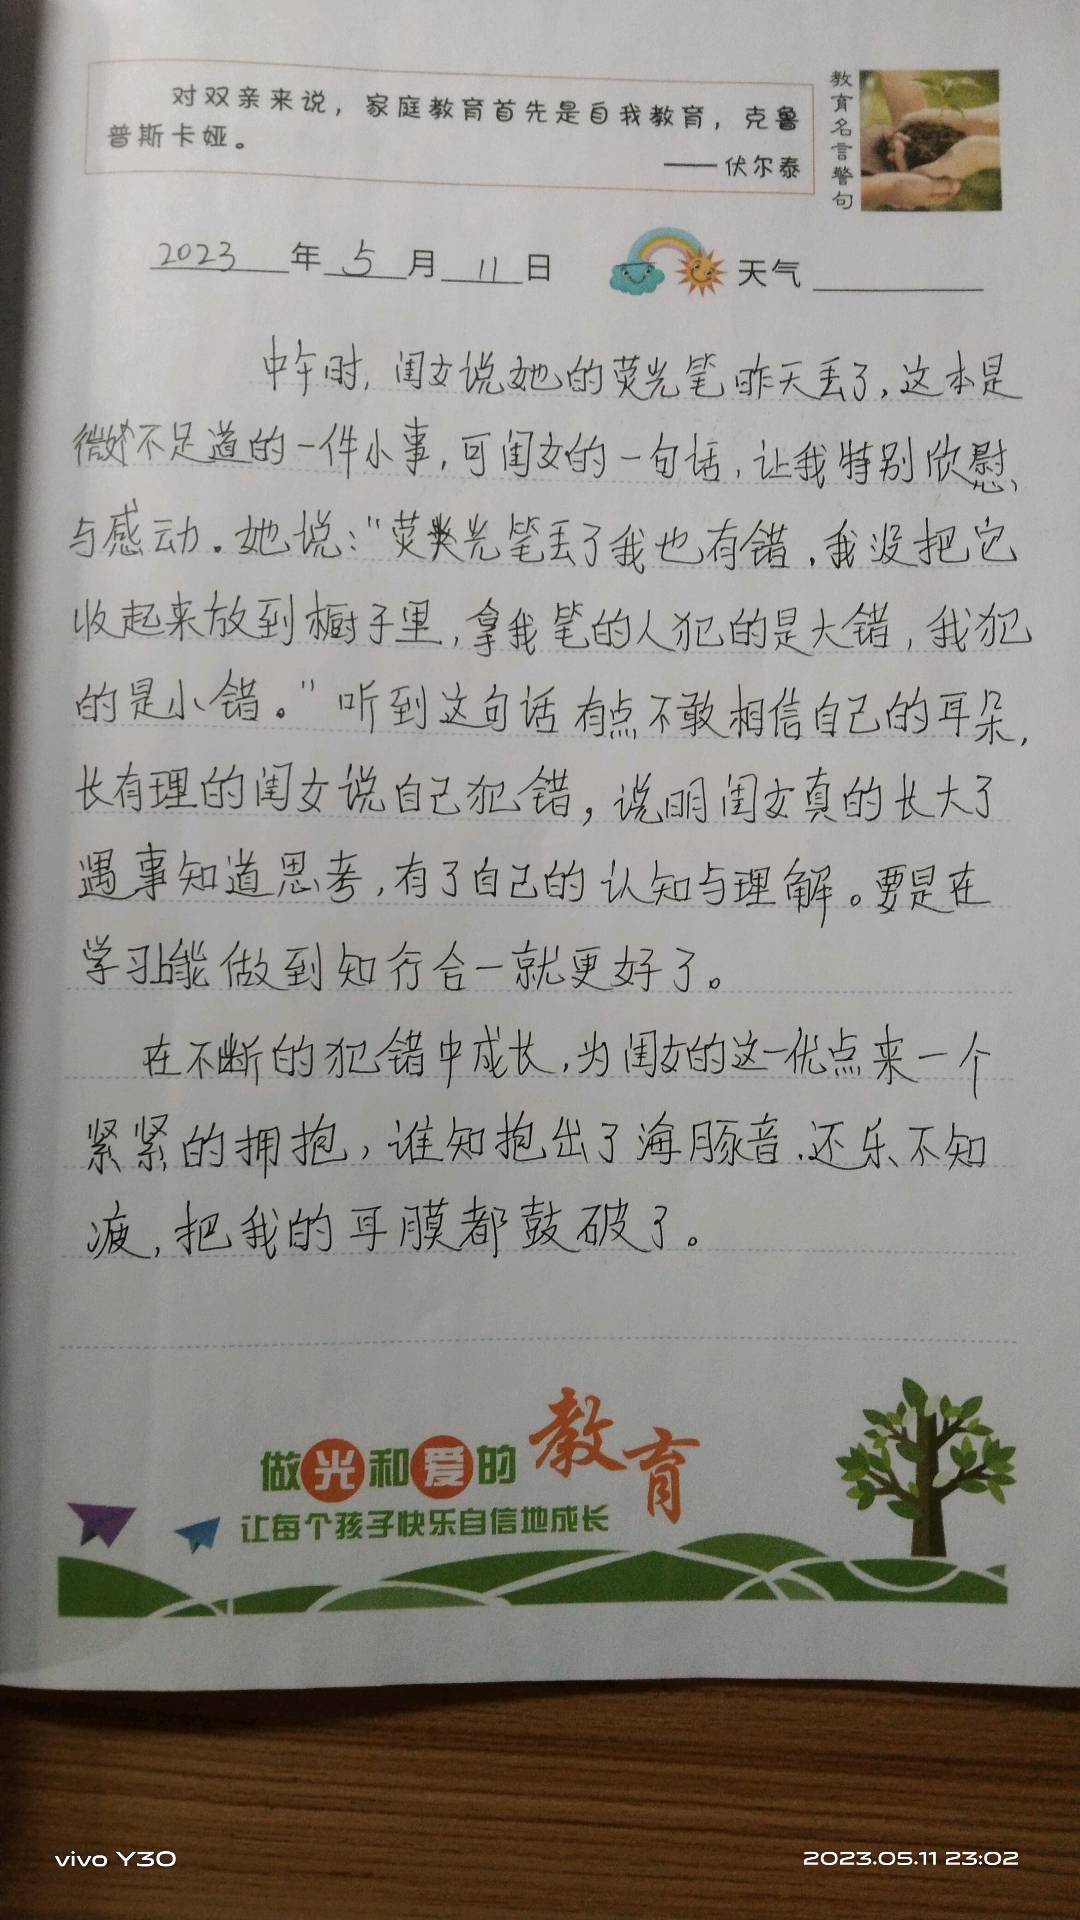 对双亲来说，家庭教育首先是自我教育，克鲁
普斯卡娅。
——伏尔泰
教育名言警句
2023年5月11日 天气
中午时，闺女说她的荧光笔昨天丢了，这本是
微不足道的一件小事，可闺女的一句话，让我特别欣慰
与感动。她说：“荧光笔丢了我也有错，我没把它
收起来放到橱子里，拿我笔的人犯的是大错，我犯
的是小错。”听到这句话有点不敢相信自己的耳朵，
长有理的闺女说自己犯错，说明闺女真的长大了
遇事知道思考，有了自己的认知与理解。要是在
学习上能做到知行合一就更好了。
在不断的犯错中成长，为闺女的这一优点来一个
紧紧的拥抱，谁知抱出了海豚音.还乐不知
疲，把我的耳膜都鼓破了。
做光和爱的教育
让每个孩子快乐自信地成长
vivo Y30
2023.05.11 23:02